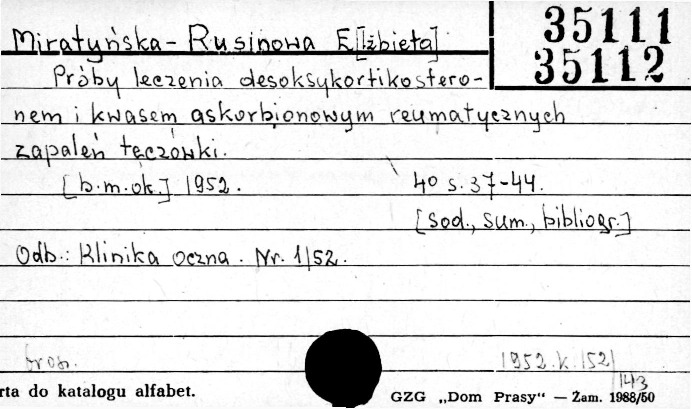 Miratyńska-Rusinowa E[lżbieta]
35111
35112
Próby leczenia desoksykortikostero-
nem i kwasem askorbionowym reumatycznych
zapaleń tęczówki.
[b.m.ok.] 1952. 4o s. 37-44.
[sod., sum., bibliogr.]
Odb.: Klinika oczna. Nr. 1/52.
brosz. 1952.K.152/
143
rta do katalogu alfabet. GZG „Dom Prasy“ — Żam. 1988/50